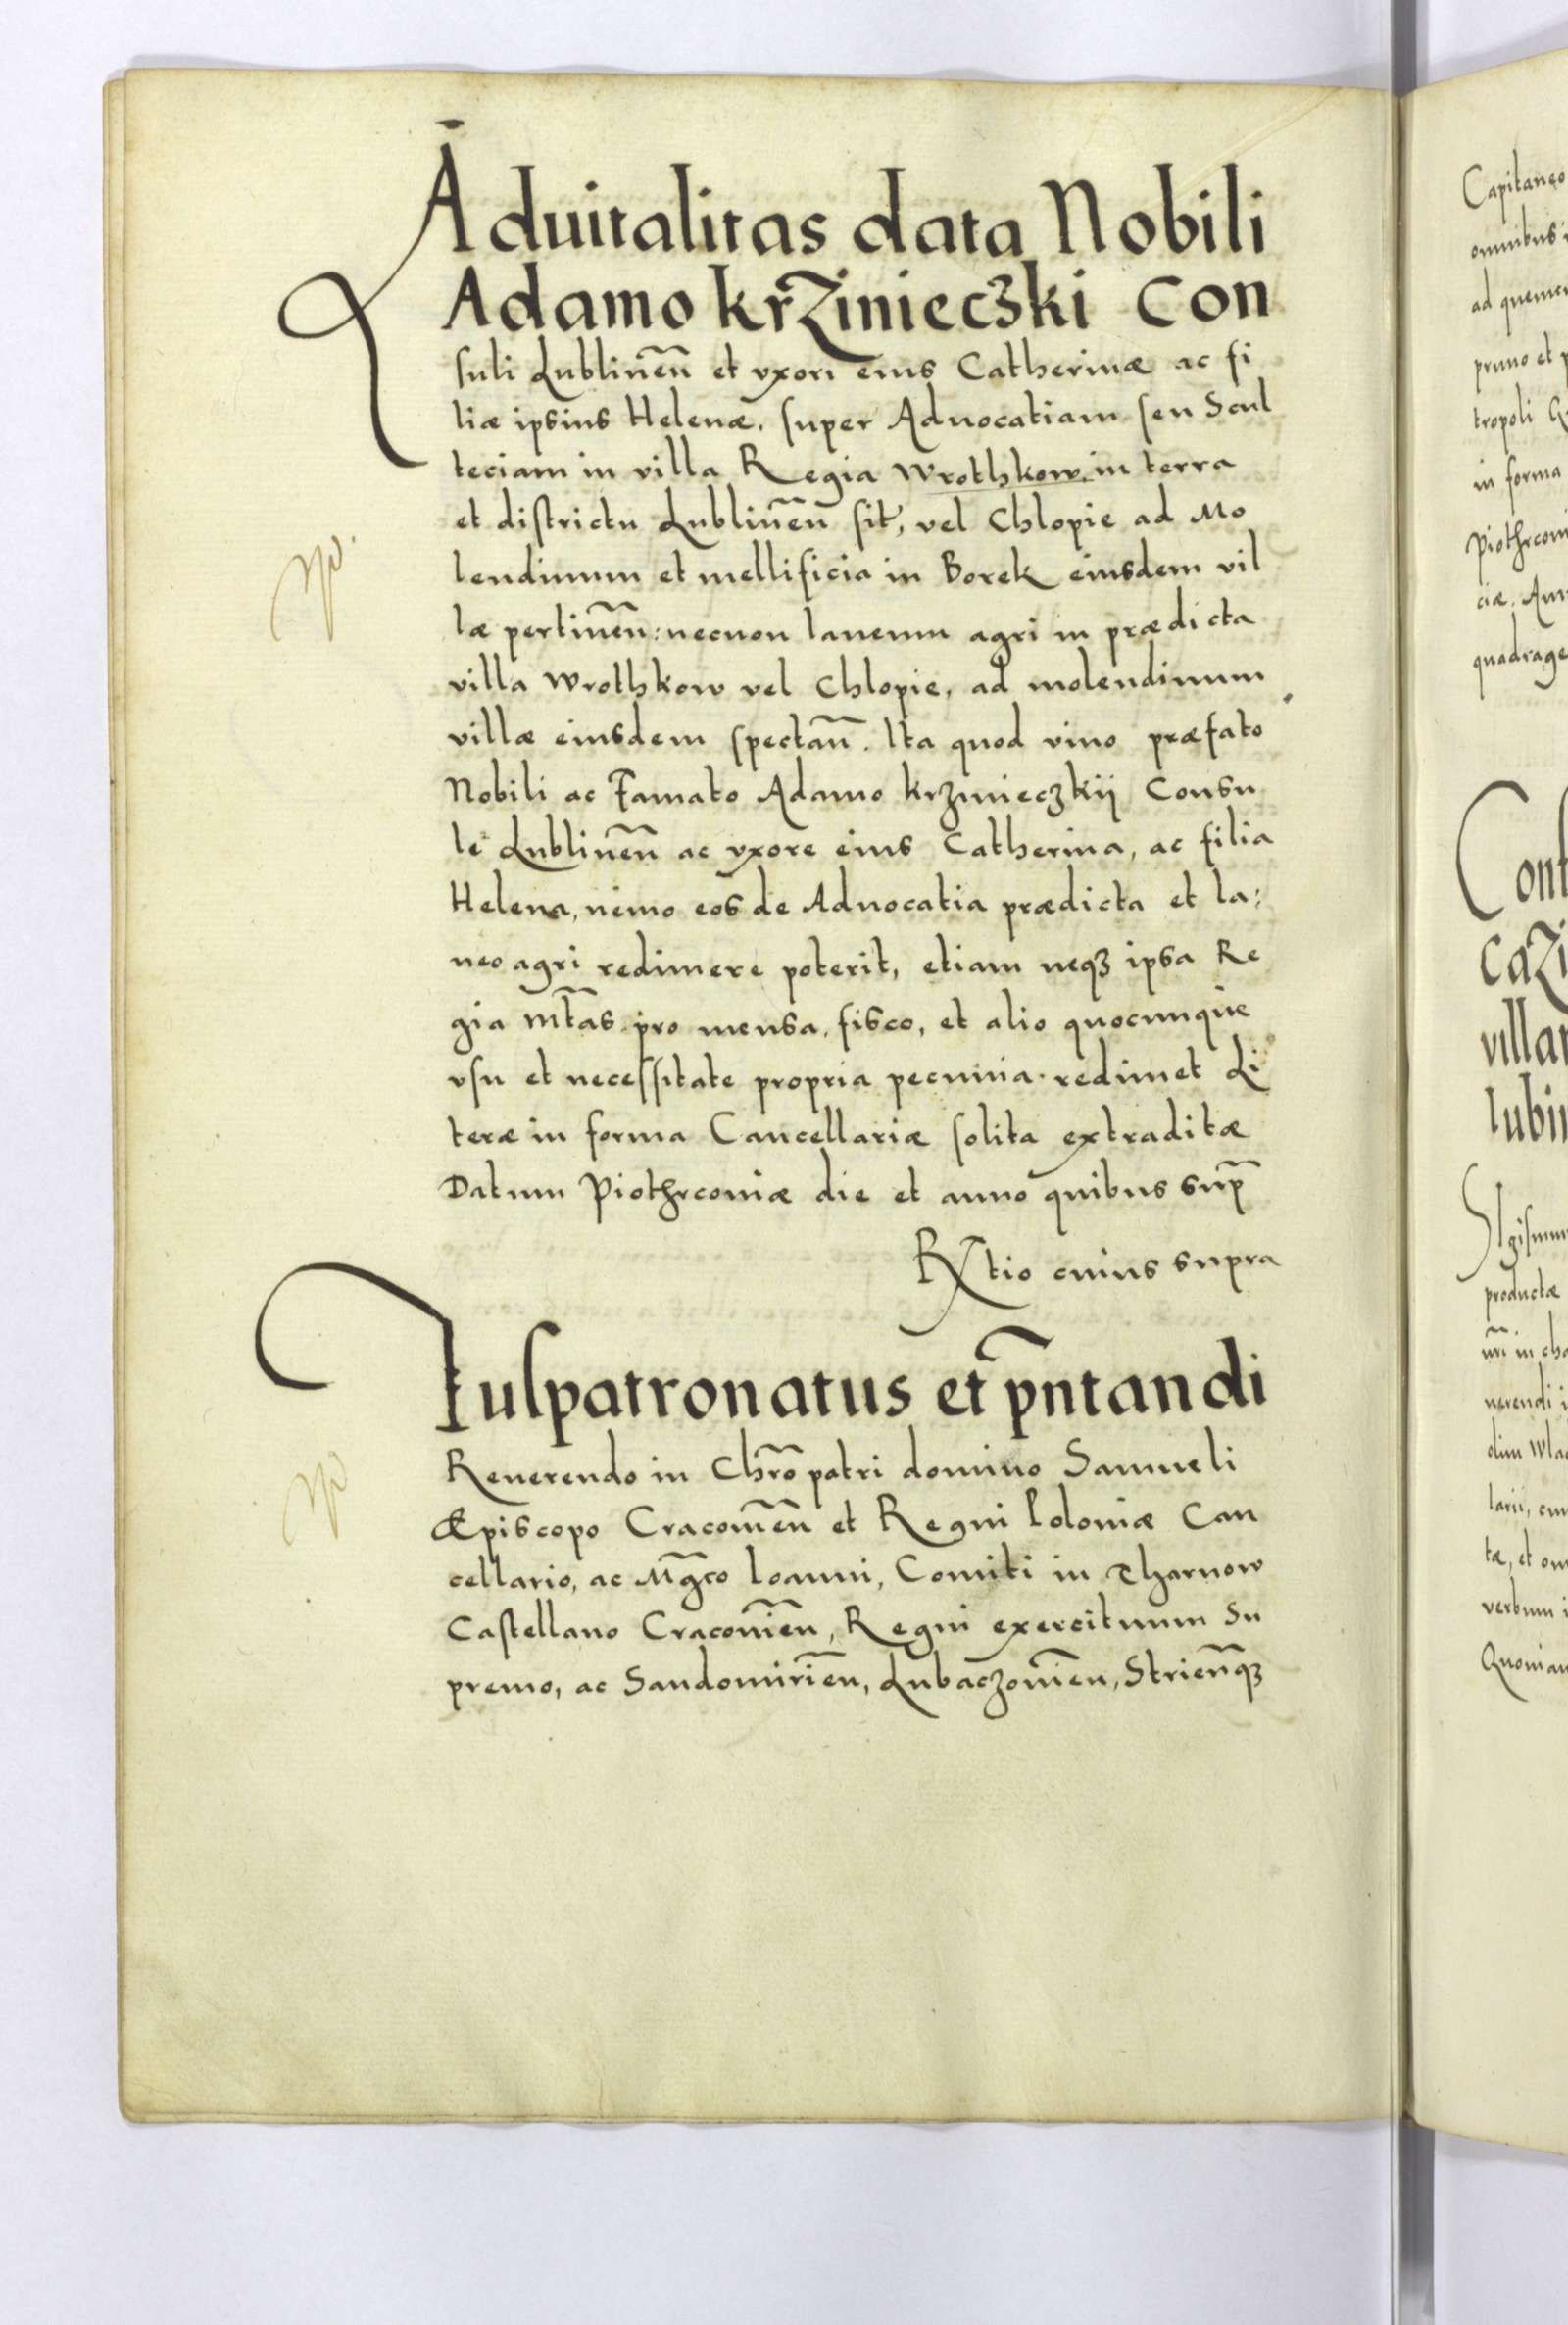 Aduitalitas data Nobili
Adamo krZinieczki Con
suli Lublineñ et vxori eius Catherinæ ac fi
liæ ipsius Helenæ. super Aduocatiam seu Scul
teciam in villa Regia Wrothkow in terra
et districtu Lublineñ sit, vel Chlopie ad Mo
lendinum et mellificia in Borek eiusdem vil
læ pertineñ: necnon laneum agri in prædicta
villa Wrothkow vel Chlopie, ad molendinum
villæ eiusdem spectañ. Ita quod viuo præfato
Nobili ac Famato Adamo krzinieczkij Consu
le Lublineñ ac vxore eius Catherina, ac filia
Helena, nemo eos de Aduocatia prædicta et la:
neo agri redimere poterit, etiam neqꝫ ipsa Re
gia Mt̃as pro mensa, fisco, et alio quocunque
vsu et necessitate propria pecunia redimet Li
teræ in forma Cancellariæ solita extraditæ
Datum Piothrconiæ die et anno quibus sup̃
R̃tio cuius supra
Iuspatronatus et p̃ntandi
Reuerendo in Chr̃o patri domino Samueli
Æpiscopo Cracouieñ et Regni Poloniæ Can
cellario, ac Mg̃co Ioanni, Comiti in Tharnow
Castellano Cracouieñ, Regni exercituum Su
premo, ac Sandomirieñ, Lubaczouieñ, Strieñqꝫ
Capitaneo
omnibus
primo et
tropoli
in forma
ciæ.
Cont
CaZi
productæ
verbum